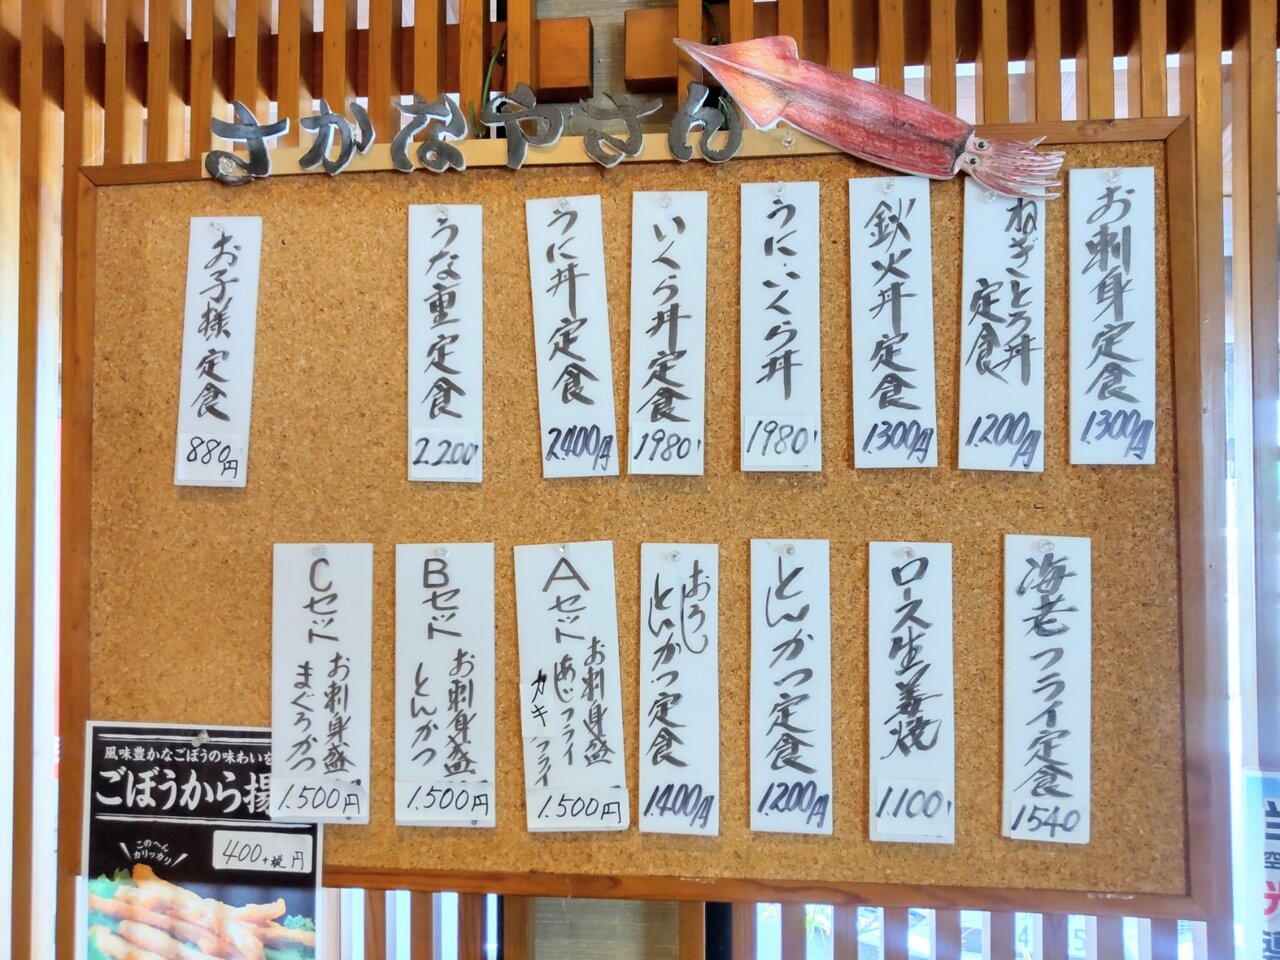 さかなやさん
お刺身定食
1.300円
ねぎとろ丼
定食
1.200円
鉄火丼定食
1.300円
うにいくら丼
1980
いくら丼定食
1980
うに丼定食
2.400円
うな重定食
2.200
お子様定食
880円
海老フライ定食
1540
ロース生姜焼
1.100
とんかつ定食
1.200円
おろし
とんかつ定食
1.400円
Aセット
お刺身盛
あじフライ
カキフライ
1.500円
Bセット
お刺身盛
とんかつ
1.500円
Cセット
お刺身盛
まぐろかつ
1.500円
風味豊かなごぼうの味わいを
ごぼうから揚
このへん
カリッカリ
400+税円
4 5